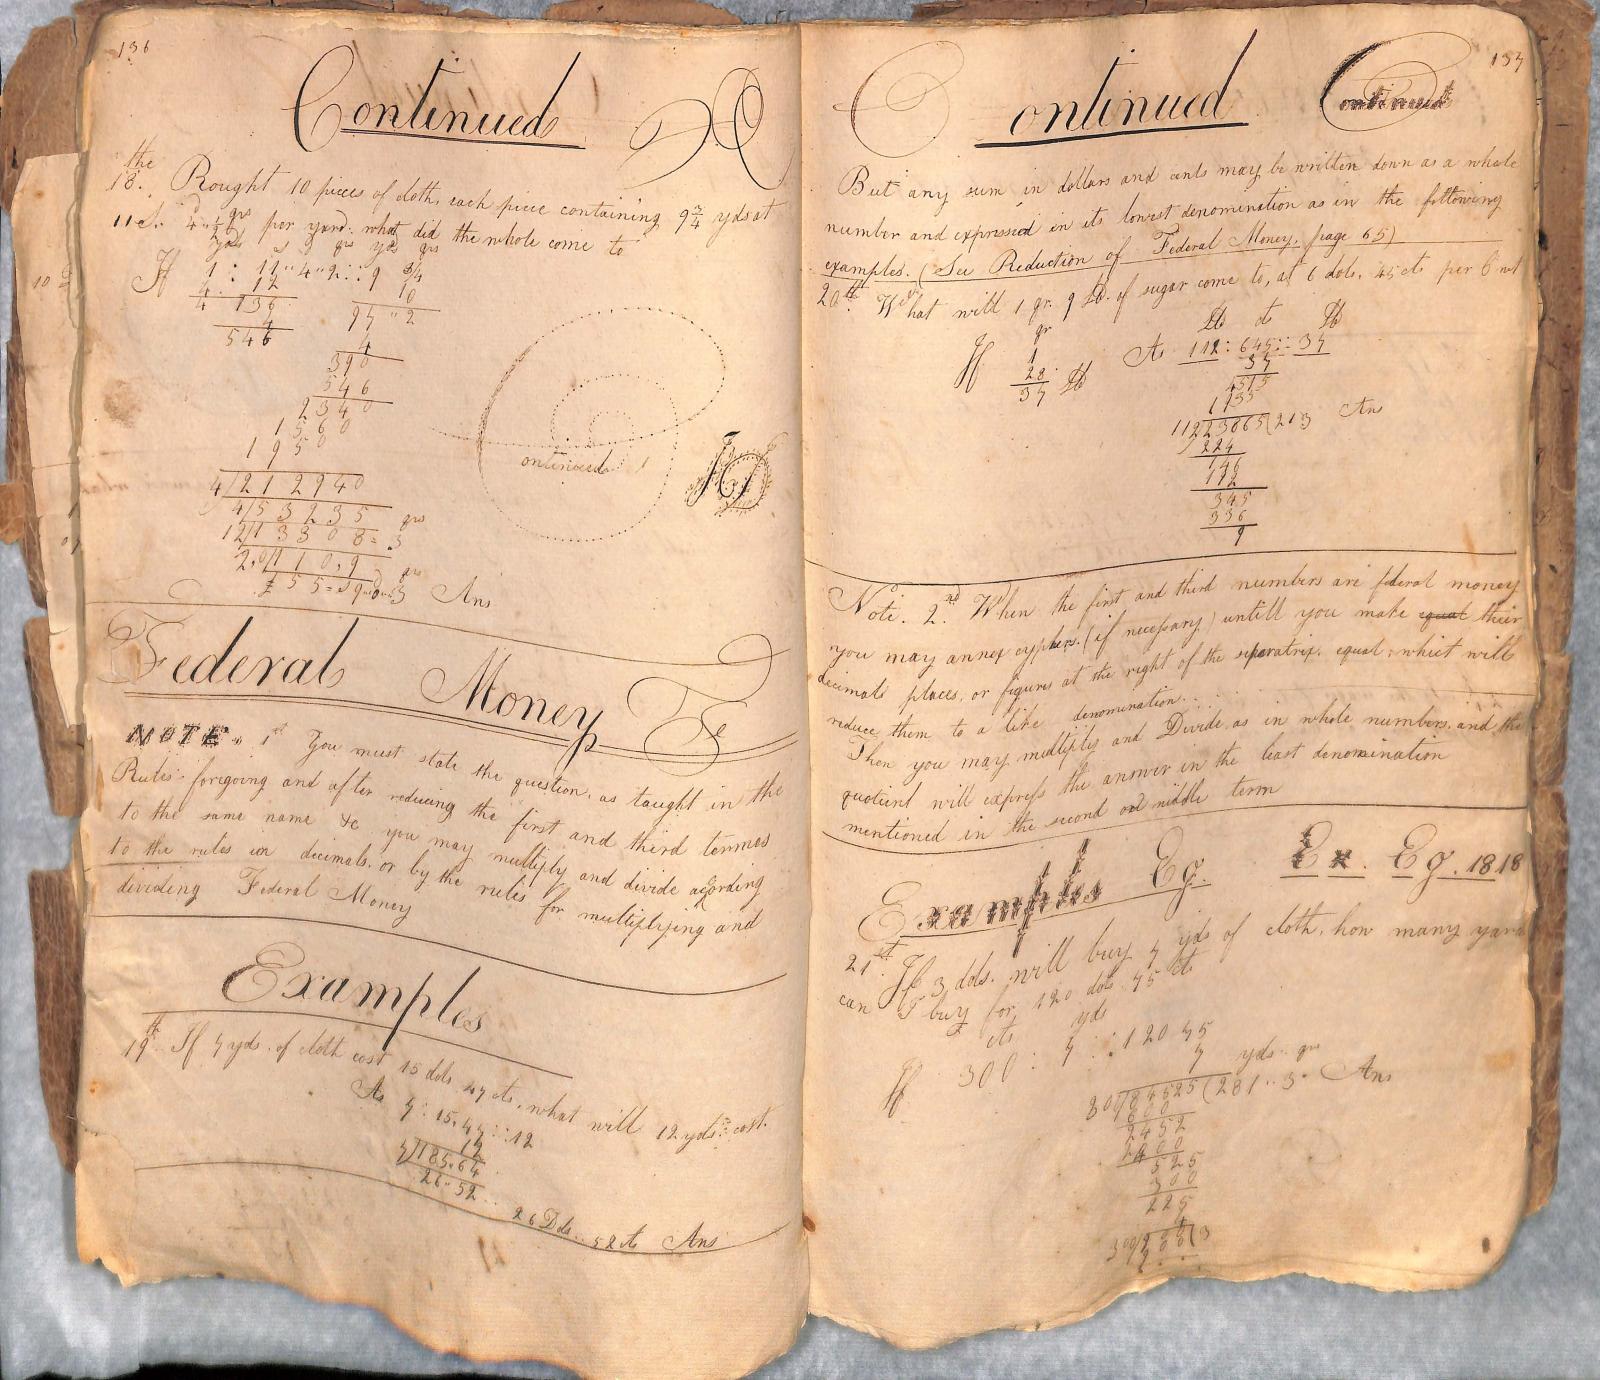 136
Continued
the
18. Bought 10 pieces of cloth, each piece containing 9 3/4 yds at
11s. 4d 1/2 per yard. what did the whole come to
yds s d qrs yds qrs
If 1 : 11 " 4 " 2 :: 9 3/4
12 10
4 136 97 " 2
4 4
546 390
546
2340
1560
1950
4/212940
4/53235 qrs
12/13308 = 3
2,0/110,9 d qrs
£ 55 = 9 " 0 " 3 Ans
ontinued
Federal Money Fe
NOTE. 1st You must state the question, as taught in the
Rules foregoing and after reducing the first and third termes
to the same name &c you may multiply and divide according
to the rules in decimals. or by the rules for multiplying and
dividing Federal Money
Examples
19th If 7 yds. of cloth cost 15 dols 47 cts. what will 12 yds cost.
As 7 : 15,47 :: 12
12
7/185,64
26 - 52
26 Dols.. 52 cts Ans
137
Continued Continued
But any sum in dollars and cents may be written down as a whole
number and expressed in its lowest denomination as in the following
examples. (See Reduction of Federal Money, page 65)
20th What will 1 qr. 9 lb. of sugar come to, at 6 dols. 45 cts per C wt
qr lb cts lb
If 1 As 112 : 645 :: 37
28 37
37 lb 4515
1935
112/23865(213 Ans
224
146
112
345
336
9
Note. 2nd When the first and third numbers are federal money
you may annex cyphers. (if necessary) untill you make equal their
decimals places, or figures at the right of the separatrix. equal, which will
reduce them to a like denomination...
Then you may multiply and Divide, as in whole numbers, and the
quotient will express the answer in the least denomination
mentioned in the second or middle term
Examples Eg. Ex. Eg. 1818
21st If 3 dols. will buy 7 yds of cloth, how many yards
can I buy for 120 dols 75 cts
cts yds
If 300 : 7 :: 120 75
7 yds qrs
300/84525(281 .. 3 Ans
600
2452
2400
525
300
225
4
300/900(3
900